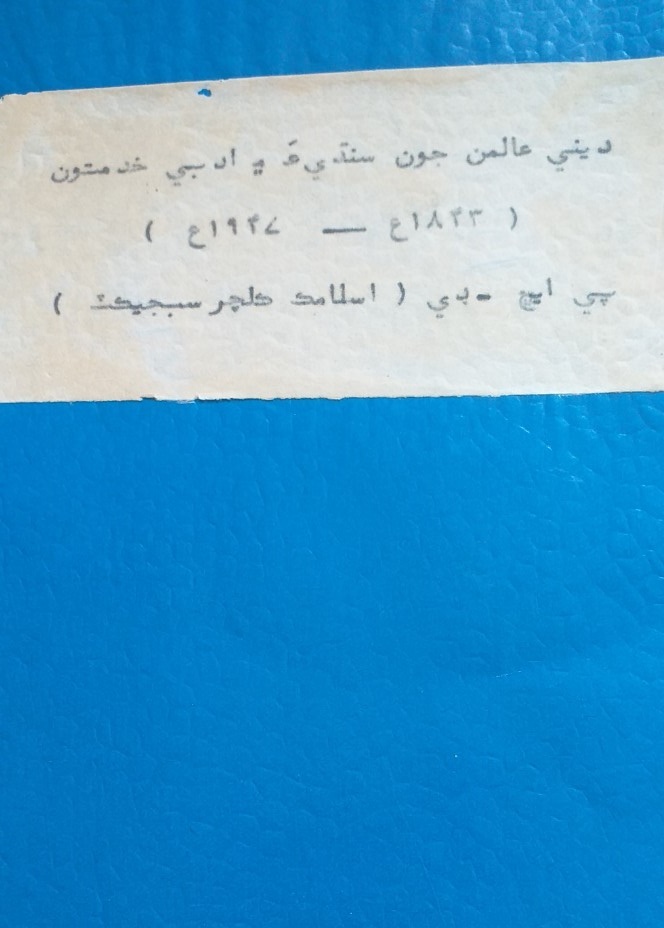 ديني عالمن جون سنڌيءَ ۾ ادبي خدمتون
( ۱۸۴۳ع — ۱۹۴۷ع )
پي ايڇ -ڊي ( اسلامڪ ڪلچر سبجيڪٽ )